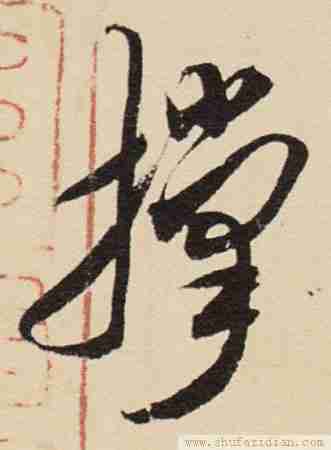 撑
www.shufazidian.com